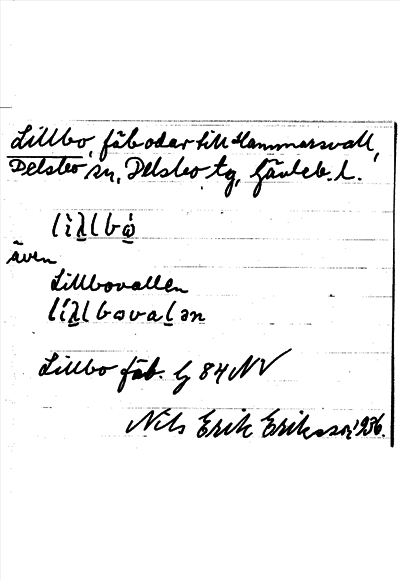 Lillbo, fäbodar till Hammarsvall,
Delsbo sn, Delsbo tg, Gävleb. l.
även
Lillbovallen
Lillbo fäb. lj 84 NV
Nils Erik Eriksson, 1936.